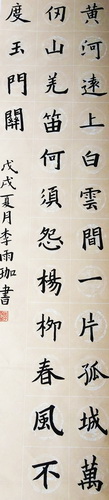 黄河遠上白雲間一片孤城萬
仞山羌笛何須怨楊柳春風不
度玉門關
戊戌夏月李雨珈書